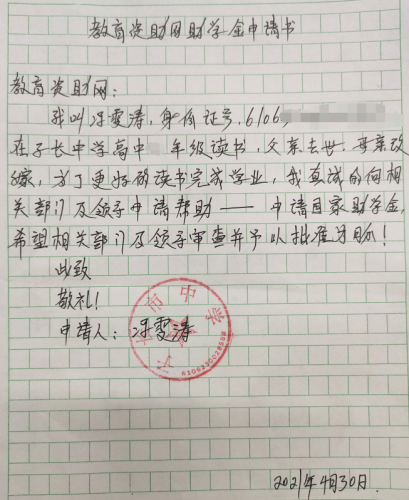 教育资助网助学金申请书
教育资助网：
我叫冯雯涛，身份证号，6106
在子长中学高中 年级读书，父亲去世，母亲改
嫁，为了更好的读书完成学业，我真诚的向相
关部门及领导申请帮助——申请国家助学金，
希望相关部门及领导审查并予以批准为盼！
此致
敬礼！
申请人：冯雯涛
子长市中学
2021年4月30日